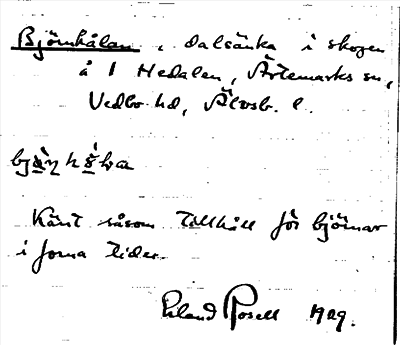 Björnhålan, dalsänka i skogen
å 1 Hedalen, Ärtemarks sn,
Vedbo hd, Älvsb. l.
Känt såsom tillhåll för björnar
i forna tider.
Erland Rosell 1929.